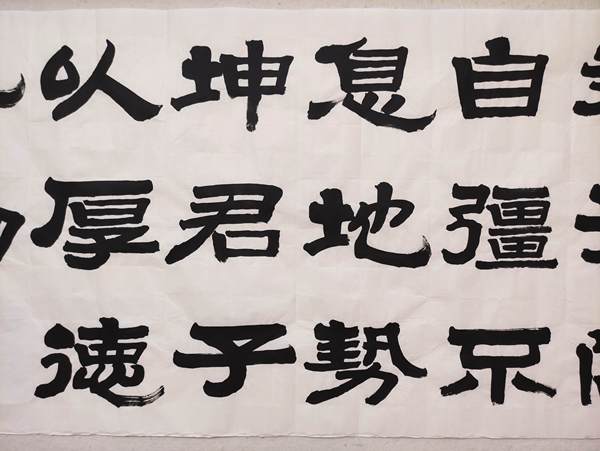 自彊不
息地勢
坤君子
以厚德